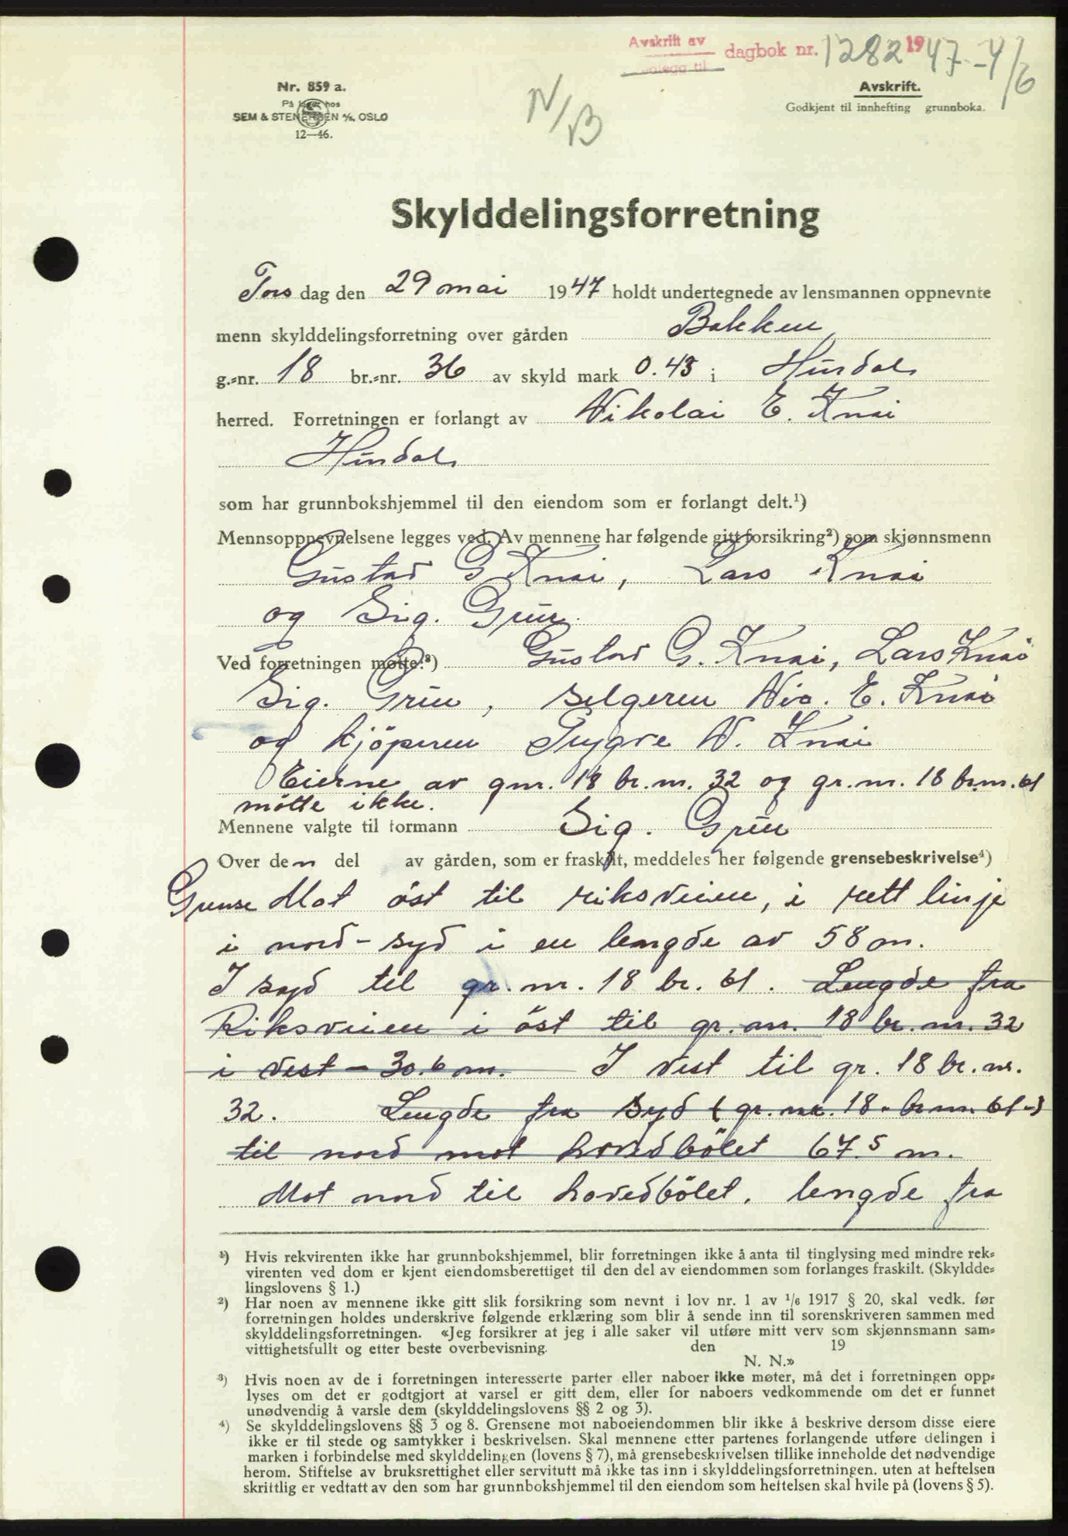 Avskrift av dagbok nr. 1282 1947 - 4/6
Nr. 859 a.
På lager hos
SEM & STENERSEN A/S, OSLO
12—46.
N/B
Avskrift.
Godkjent til innhefting grunnboka.
Skylddelingsforretning
Tors dag den 29 mai 1947 holdt undertegnede av lensmannen oppnevnte
menn skylddelingsforretning over gården Bakken
g.-nr. 18 br.-nr. 36 av skyld mark 0.43 i Hurdal
herred. Forretningen er forlangt av Nikolai E. Knai
Hurdal
som har grunnbokshjemmel til den eiendom som er forlangt delt.¹)
Mennsoppnevnelsene legges ved. Av mennene har følgende gitt forsikring²) som skjønnsmenn
Gustav G Knai, Lars Knai
og Sig. Grue.
Ved forretningen møtte:³) Gustav G. Knai, Lars Knai
Sig. Grue, selgeren Nic. E. Knai
og kjöperen Trygve N. Knai
Eierne av gnr. 18 br.nr. 32 og gr.nr. 18 br.nr. 61
mötte ikke.
Mennene valgte til formann Sig. Grue
Over den del av gården, som er fraskilt, meddeles her følgende grensebeskrivelse⁴)
Grense Mot öst til riksveien, i rett linje
i nord-syd i en lengde av 58 m.
I syd til gr. nr. 18 br. 61. Lengde fra
Riksveien i öst til gr. nr. 18 br. nr. 32
i vest - 30.6 m. I vest til gr. 18 br. nr.
32. Lengde fra syd (gr. nr. 18 - br.nr. 61-)
til nord mot hovedbölet 67.5 m.
Mot nord til hovedbölet. lengde fra
¹) Hvis rekvirenten ikke har grunnbokshjemmel, blir forretningen ikke å anta til tinglysing med mindre rek-
virenten ved dom er kjent eiendomsberettiget til den del av eiendommen som forlanges fraskilt. (Skyldde-
lingslovens § 1.)
²) Har noen av mennene ikke gitt slik forsikring som nevnt i lov nr. 1 av 1/6 1917 § 20, skal vedk. før
forretningen holdes underskrive følgende erklæring som blir å sende inn til sorenskriveren sammen med
skylddelingsforretningen. «Jeg forsikrer at jeg i alle saker vil utføre mitt verv som skjønnsmann sam-
vittighetsfullt og etter beste overbevisning. den 19
N. N.»
³) Hvis noen av de i forretningen interesserte parter eller naboer ikke møter, må det i forretningen opp-
lyses om det er godtgjort at varsel er gitt dem, eller for naboers vedkommende om det er funnet
unødvendig å varsle dem (skylddelingslovens §§ 2 og 3).
⁴) Se skylddelingslovens §§ 3 og 8. Grensene mot naboeiendommen blir ikke å beskrive dersom disse eiere
ikke er til stede og samtykker i beskrivelsen. Skal mennene etter partenes forlangende utføre delingen i
marken i forbindelse med skylddelingen (lovens § 7), må grensebeskrivelsen tillike inneholde det nødvendige
herom. Stiftelse av bruksrettighet eller servitutt må ikke tas inn i skylddelingsforretningen, uten at heftelsen
skriftlig er vedtatt av den som har grunnbokshjemmel til den eiendom som heftelsen skal hvile på (lovens § 5).